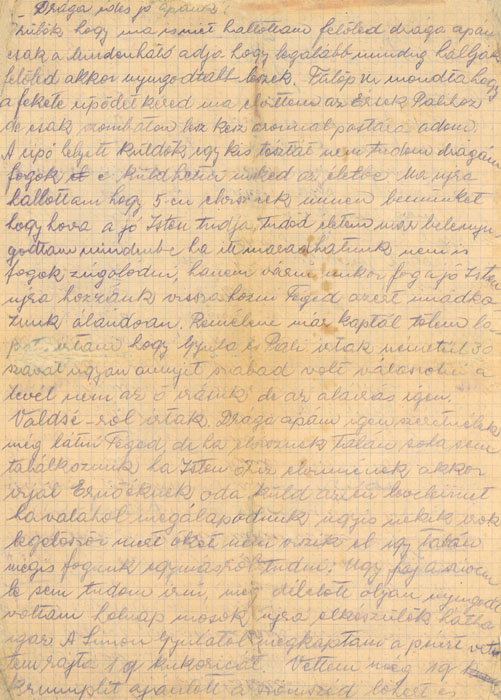 Drága édes jó apánk!
Örülök hogy ma ismét hallottam felőled drága apám
csak a mindenható adja hogy legalább mindig halljak
felőled akkor nyugodtabb leszek. Fülöp n mondta hogy
a fekete cipődet kéred ma elvittem az Érsek Palihoz
de csak szombaton lesz kész azonnal postára adom.
A cipő helyett küldök egy kis teát nem tudom drágám
fogok e küldhetni neked az életbe Ma újra
hallottam hogy 5-én elvisznek innen bennünket
hogy hova a jó Isten tudja, tudod életem már belenyu
godtam mindenbe ha itt maradhatunk nem is
fogok zúgolódni, hanem várni mikor fog a jó Isten
újra hozzánk vissza hozni Téged azért imádko
zunk álandóan. Remélem már kaptál tőlem la
pot, írtam hogy Gyula és Pali írtak németül 30
szóval ugyan annyit szabad volt válaszolni a
levél nem az ő írásuk de az aláírás igen.
Valdsé-ról írtak. Drága apám igen szeretnélek
még látni Téged, de ha elvisznek talán soha sem
találkozunk ha Isten őriz elvinnének akkor
írjál Ernőéknek oda küld a címedet
ha valahol megálapodunk úgyis nekik írok
legelőször mert őket nem viszik el így talán
mégis fogunk egymásról tudni: Úgy fáj a szívem
le sem tudom írni, még délelőtt olyan nyugodt
voltam holnap mosok újra elkészülök hátha
igaz. A Simon Gyulától megkaptam a pénzt vet
tem rajta 1 q kukoricát. Vettem még 1 q
krumplit